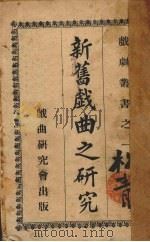 戲劇叢書之
新舊戲曲之研究
戲曲研究會出版